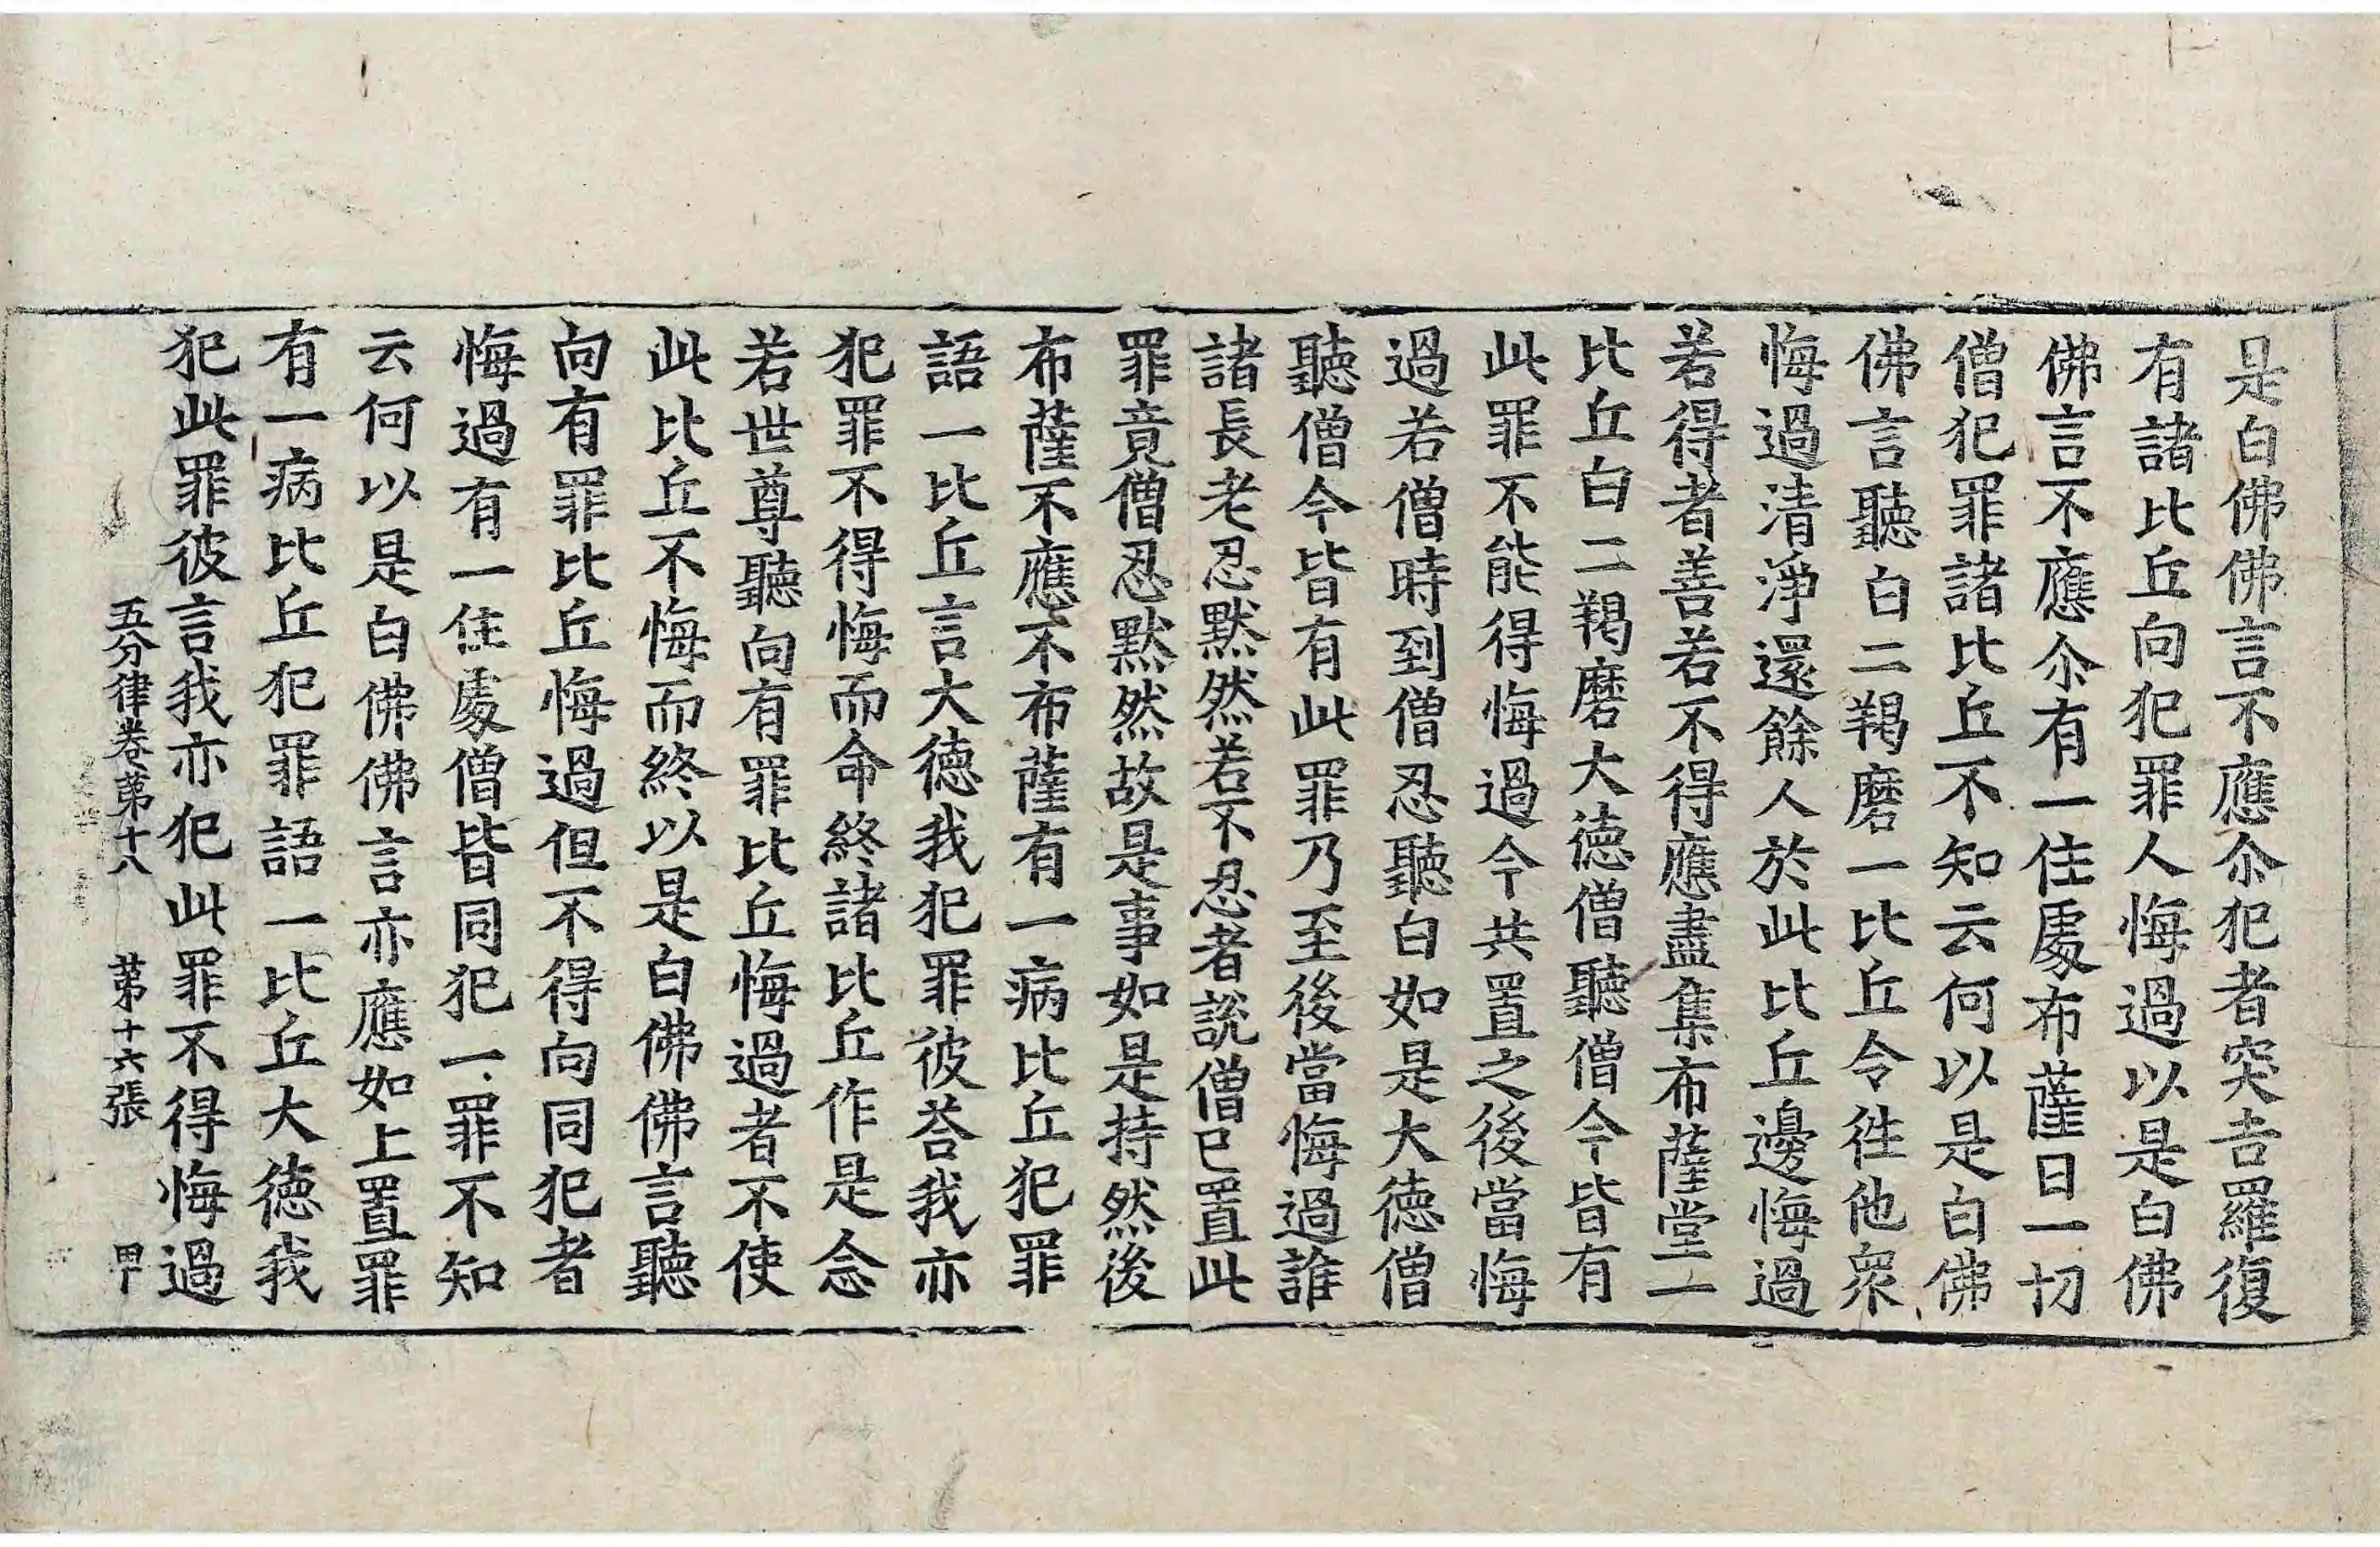 是白佛佛言不應尒犯者突吉羅復
有諸比丘向犯罪人悔過以是白佛
佛言不應尒有一住處布薩日一切
僧犯罪諸比丘不知云何以是白佛
佛言聽白二羯磨一比丘令徃他衆
悔過清淨還餘人於此比丘邊悔過
若得者善若不得應盡集布薩堂一
比丘白二羯磨大德僧聽僧今皆有
此罪不能得悔過今共置之後當悔
過若僧時到僧忍聽白如是大德僧
聽僧今皆有此罪乃至後當悔過誰
諸長老忍默然若不忍者說僧已置此
罪竟僧忍默然故是事如是持然後
布薩不應不布薩有一病比丘犯罪
語一比丘言大德我犯罪彼荅我亦
犯罪不得悔而命終諸比丘作是念
若世尊聽向有罪比丘悔過者不使
此比丘不悔而終以是白佛佛言聽
向有罪比丘悔過但不得向同犯者
悔過有一住處僧皆同犯一罪不知
云何以是白佛佛言亦應如上置罪
有一病比丘犯罪語一比丘大德我
犯此罪彼言我亦犯此罪不得悔過
五分律卷第十八 第十六張 甲